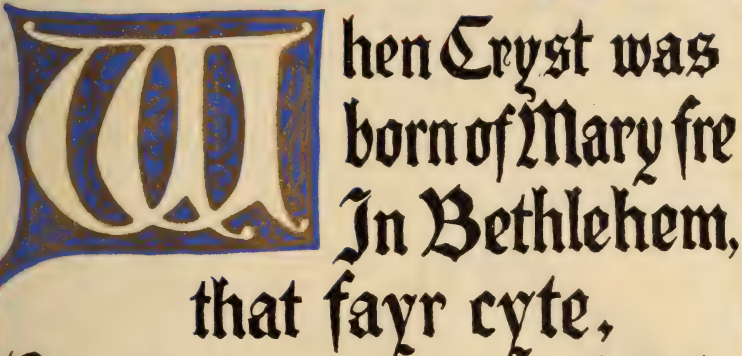 When Cryst was
born of Mary fre
In Bethlehem,
that fayr cyte,